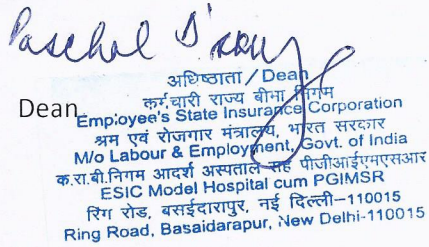 Paschal D'souza
अधिष्ठाता / Dean
Dean
कर्मचारी राज्य बीमा निगम
Employee's State Insurance Corporation
श्रम एवं रोजगार मंत्रालय, भारत सरकार
M/o Labour & Employment, Govt. of India
क.रा.बी.निगम आदर्श अस्पताल सह पीजीआईएमएसआर
ESIC Model Hospital cum PGIMSR
रिंग रोड, बसईदारापुर, नई दिल्ली-110015
Ring Road, Basaidarapur, New Delhi-110015